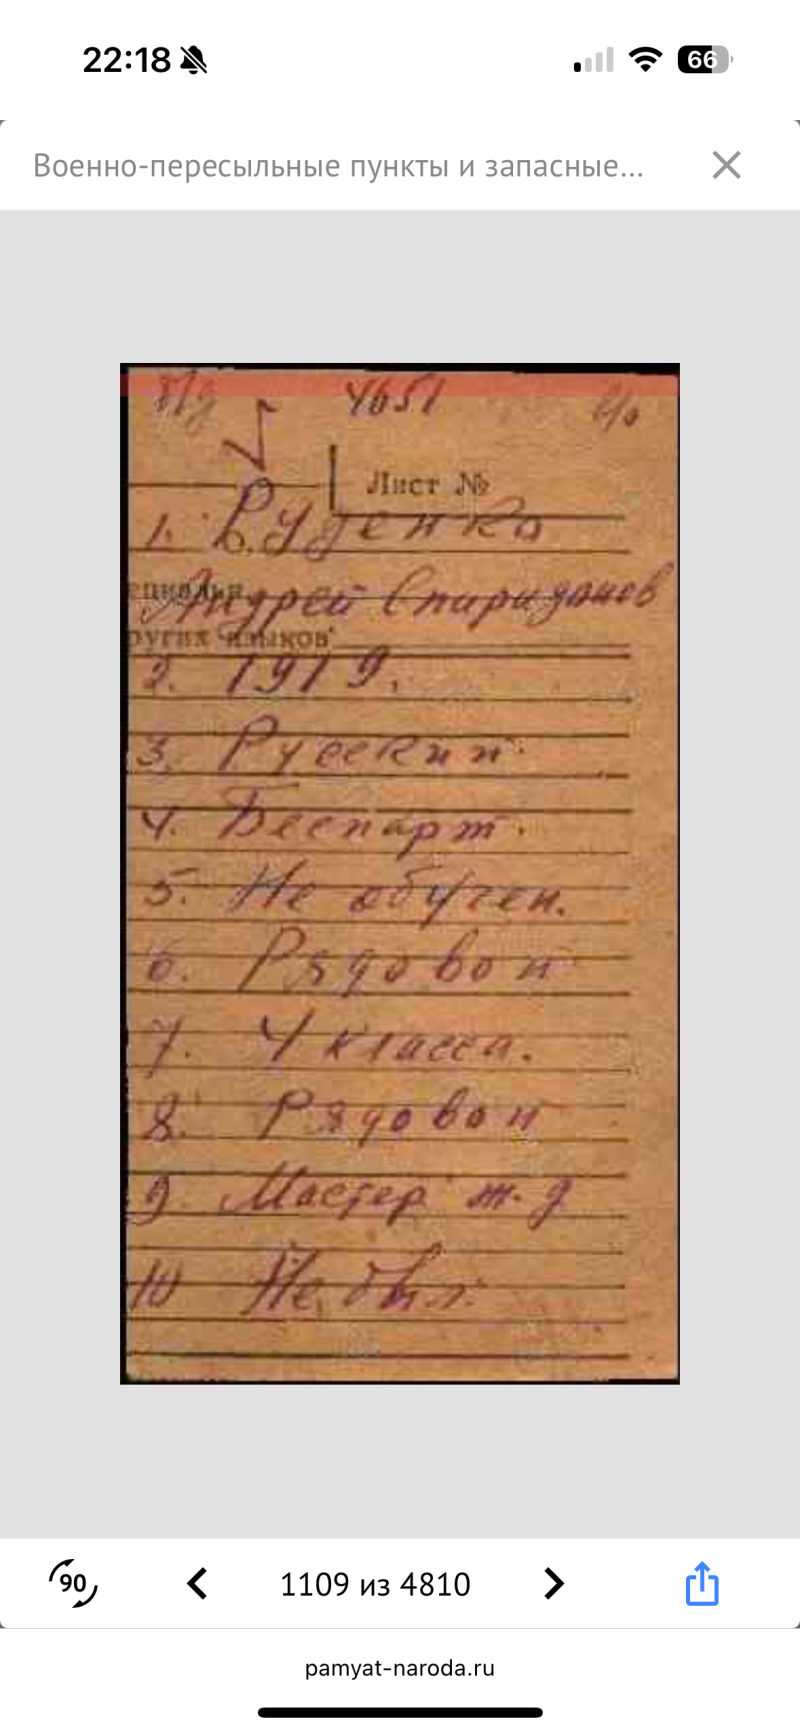 22:18
66
Военно-пересыльные пункты и запасные...
4651
Лист №
1. Руденко
Андрей Спиридонов
ругих языков
2. 1919.
3. Русский.
4. Беспарт.
5. Не обучен.
6. Рядовой
7. 4 класса.
8. Рядовой
9. Мастер ж.д
10 Не был.
90
1109 из 4810
pamyat-naroda.ru